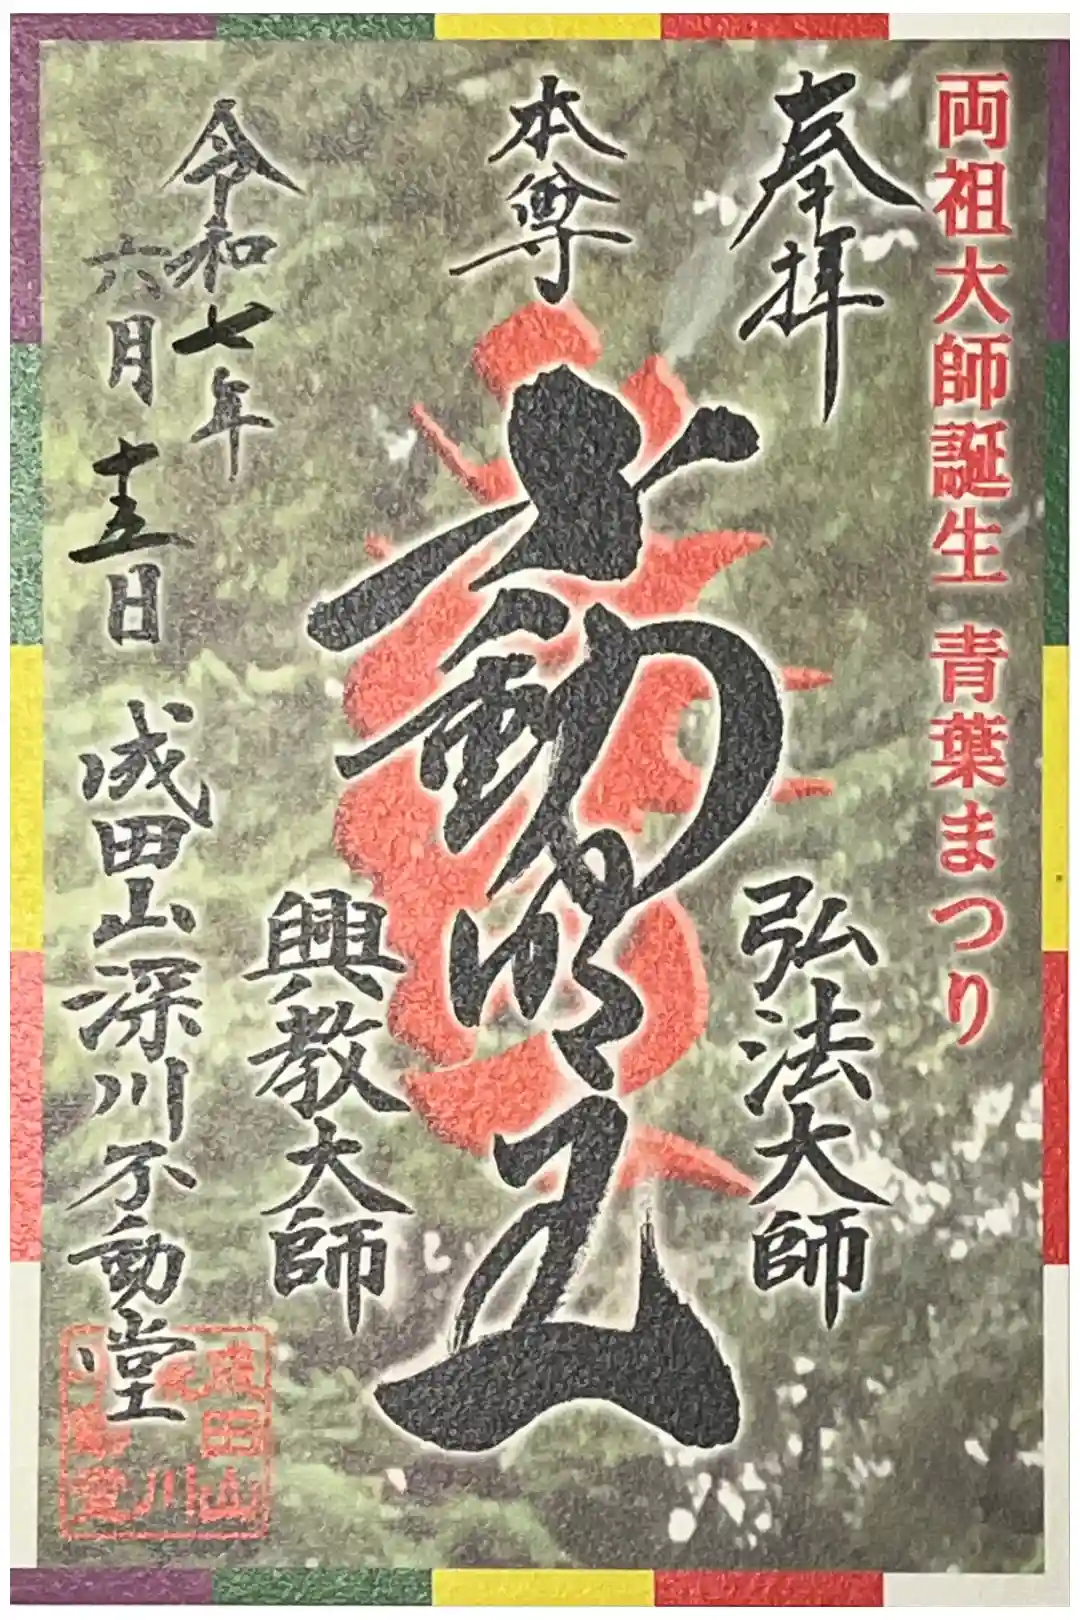 両祖大師誕生 青葉まつり
奉拝
弘法大師
本尊
不動明王
興教大師
令和七年
六月十五日
成田山深川不動堂
成田山
深川
不動堂